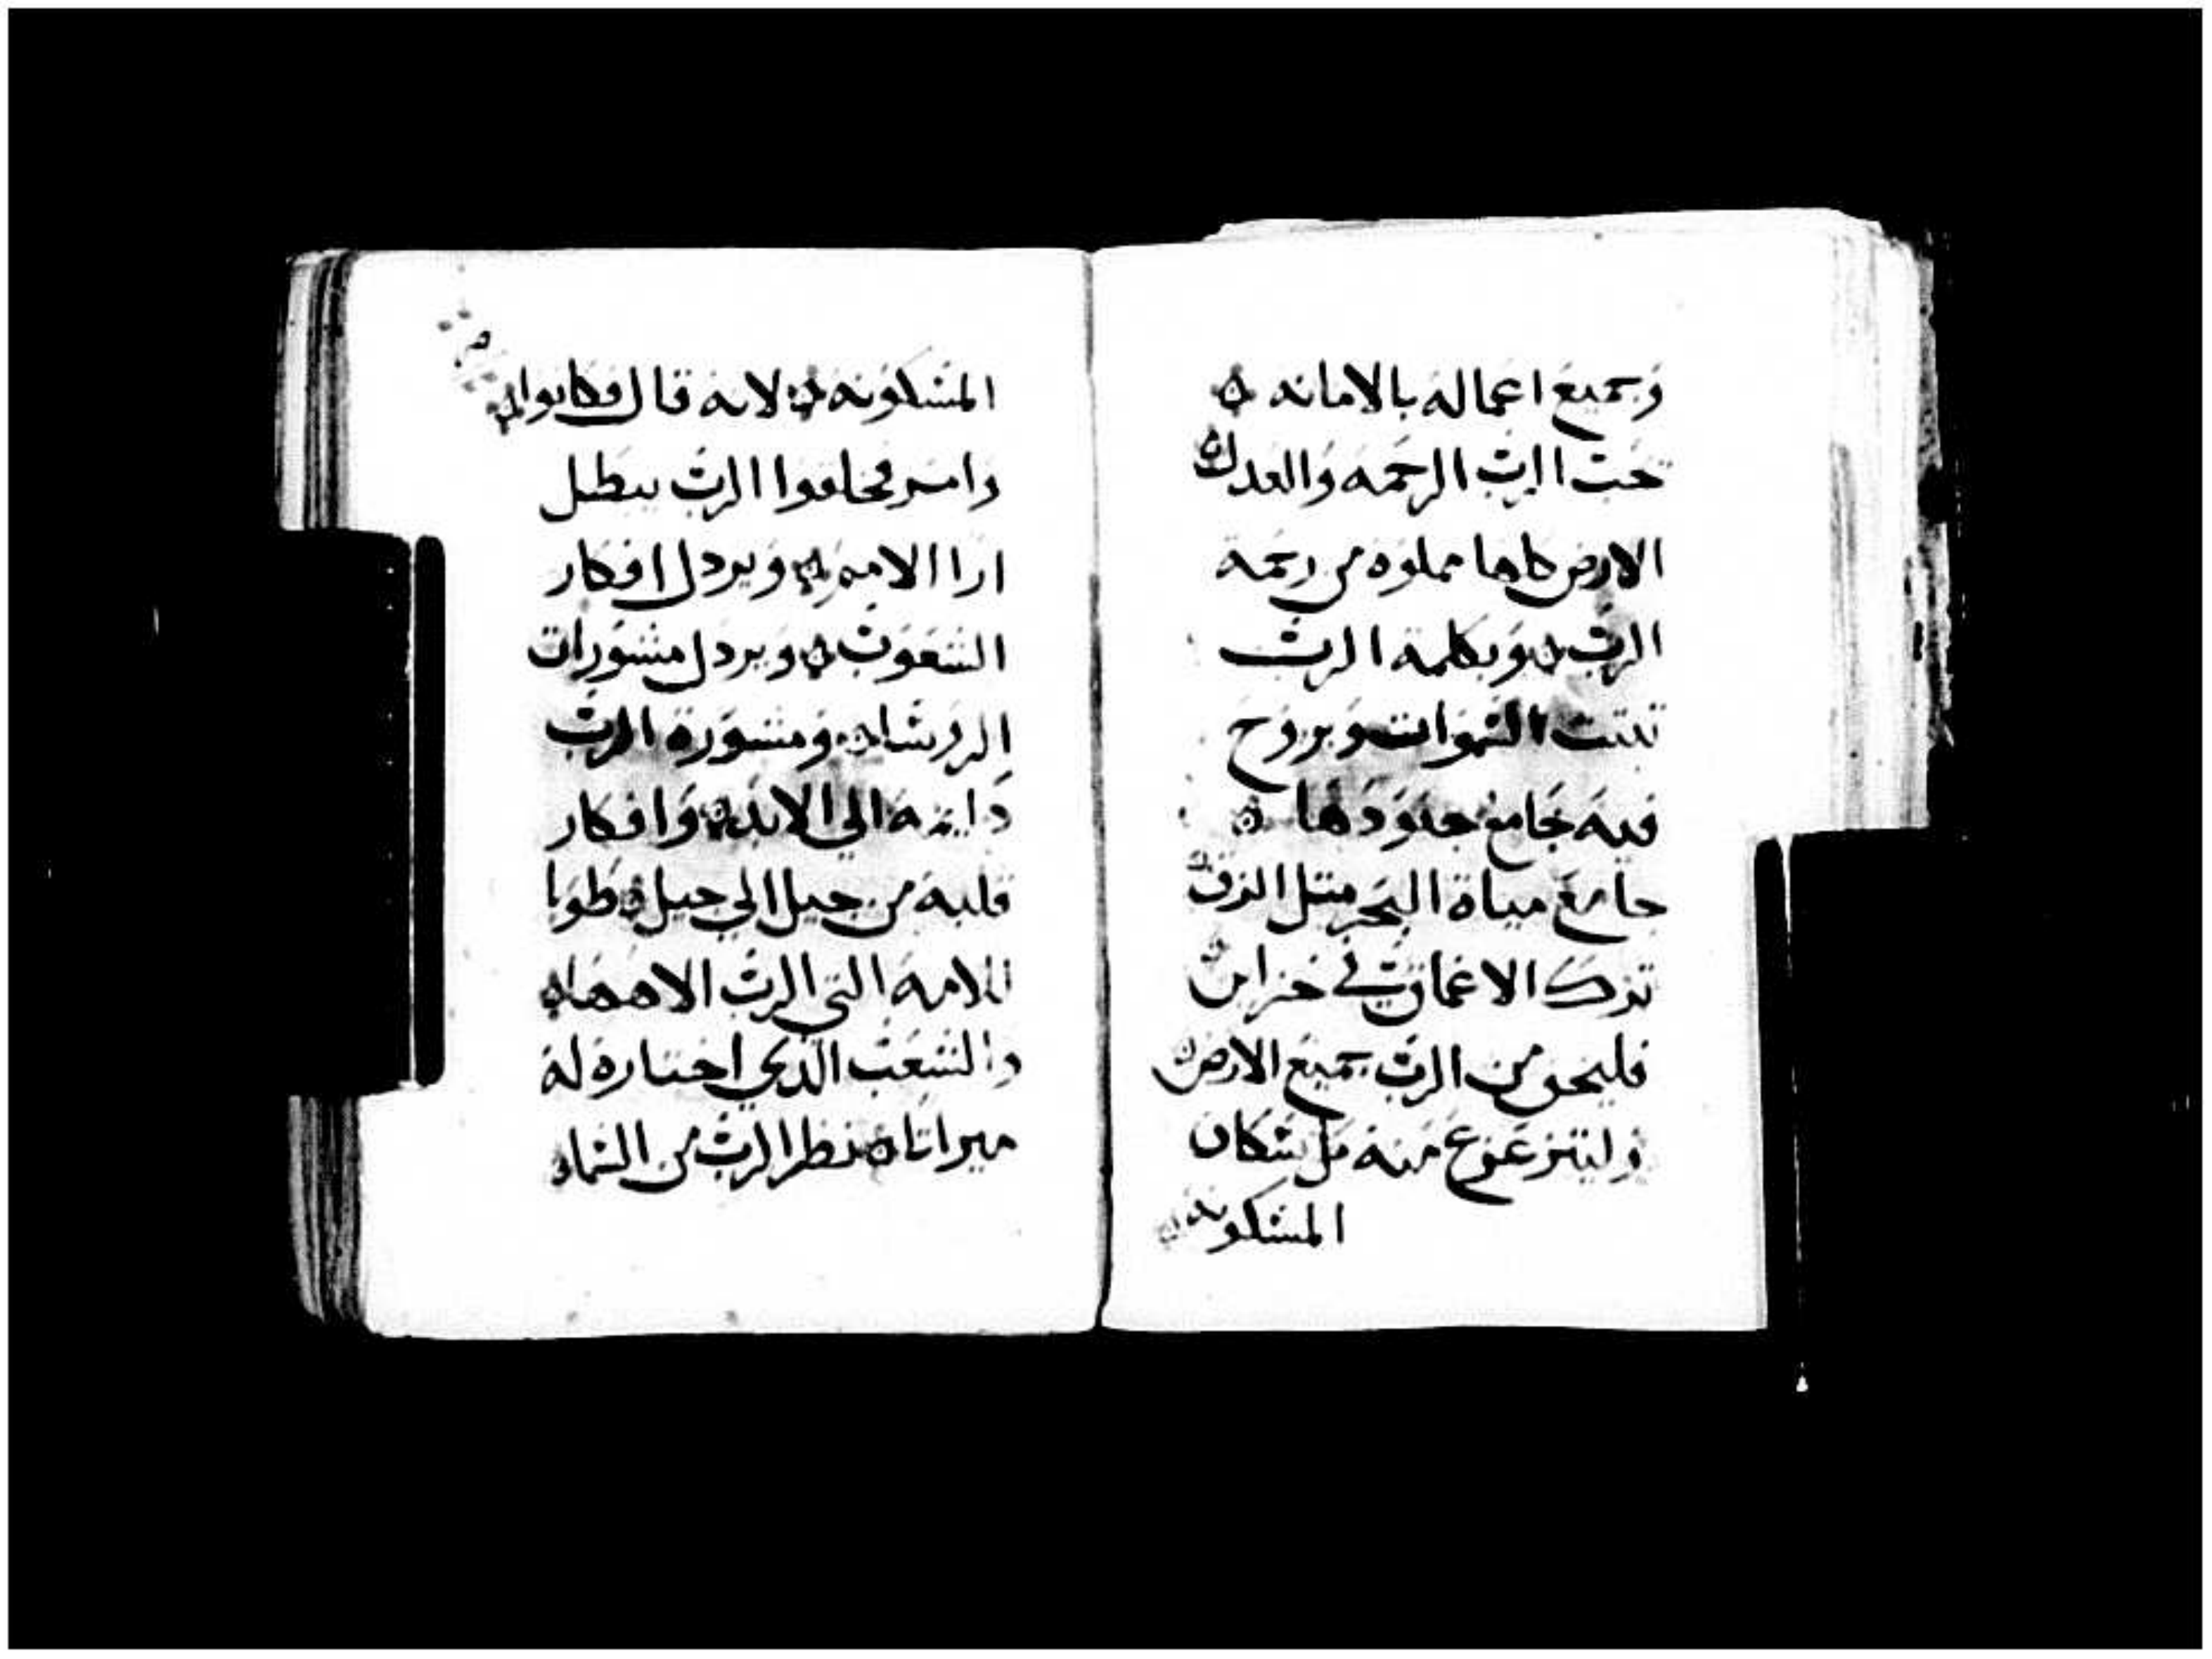 وجميع اعماله بالامانه ۞
تحب الرب الرحمه والعدل
الارض كلها مملوه من رحمة
الرب ۞ وبكلمة الرب
تبتت السموات وبروح
فيه جامع جنودها ۞
جامع مياة البحر متل الزق
ترك الاغماق في خزاين
فليخف من الرب جميع الارض
وليتزعزع منه كل سكان
المسكونه
المسكونه ۞ لانه قال فكانوا
وامر فخلقوا الرب يبطل
ارا الامم ۞ ويردل افكار
الشعوب ۞ ويردل مشورات
الروسا ۞ ومشورة الرب
دايمه الي الابد ۞ وافكار
قلبه من جيل الي جيل ۞ طوبا
للامه التي الرب الاهها ۞
والشعب الذي اختاره له
ميراتا ۞ نظر الرب من السماء